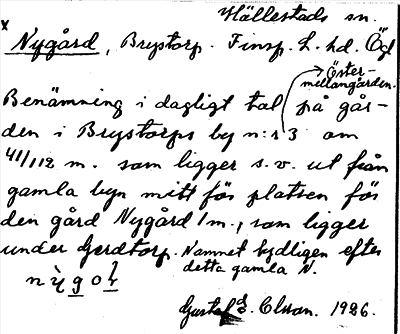 Hällestads sn.
x
Nygård, Brystorp. Finsp. l. hd. Ögl
Öster-
mellangården.
Benämning i dagligt tal på går-
den i Brystorps by n:r 3 om
41/112 m. som ligger s.v. ut från
gamla byn mitt för platsen för
den gård Nygård /m., som ligger
under Gerdtorp. Namnet tydligen efter
detta gamla N.
Gustaf E. Olsson. 1926.